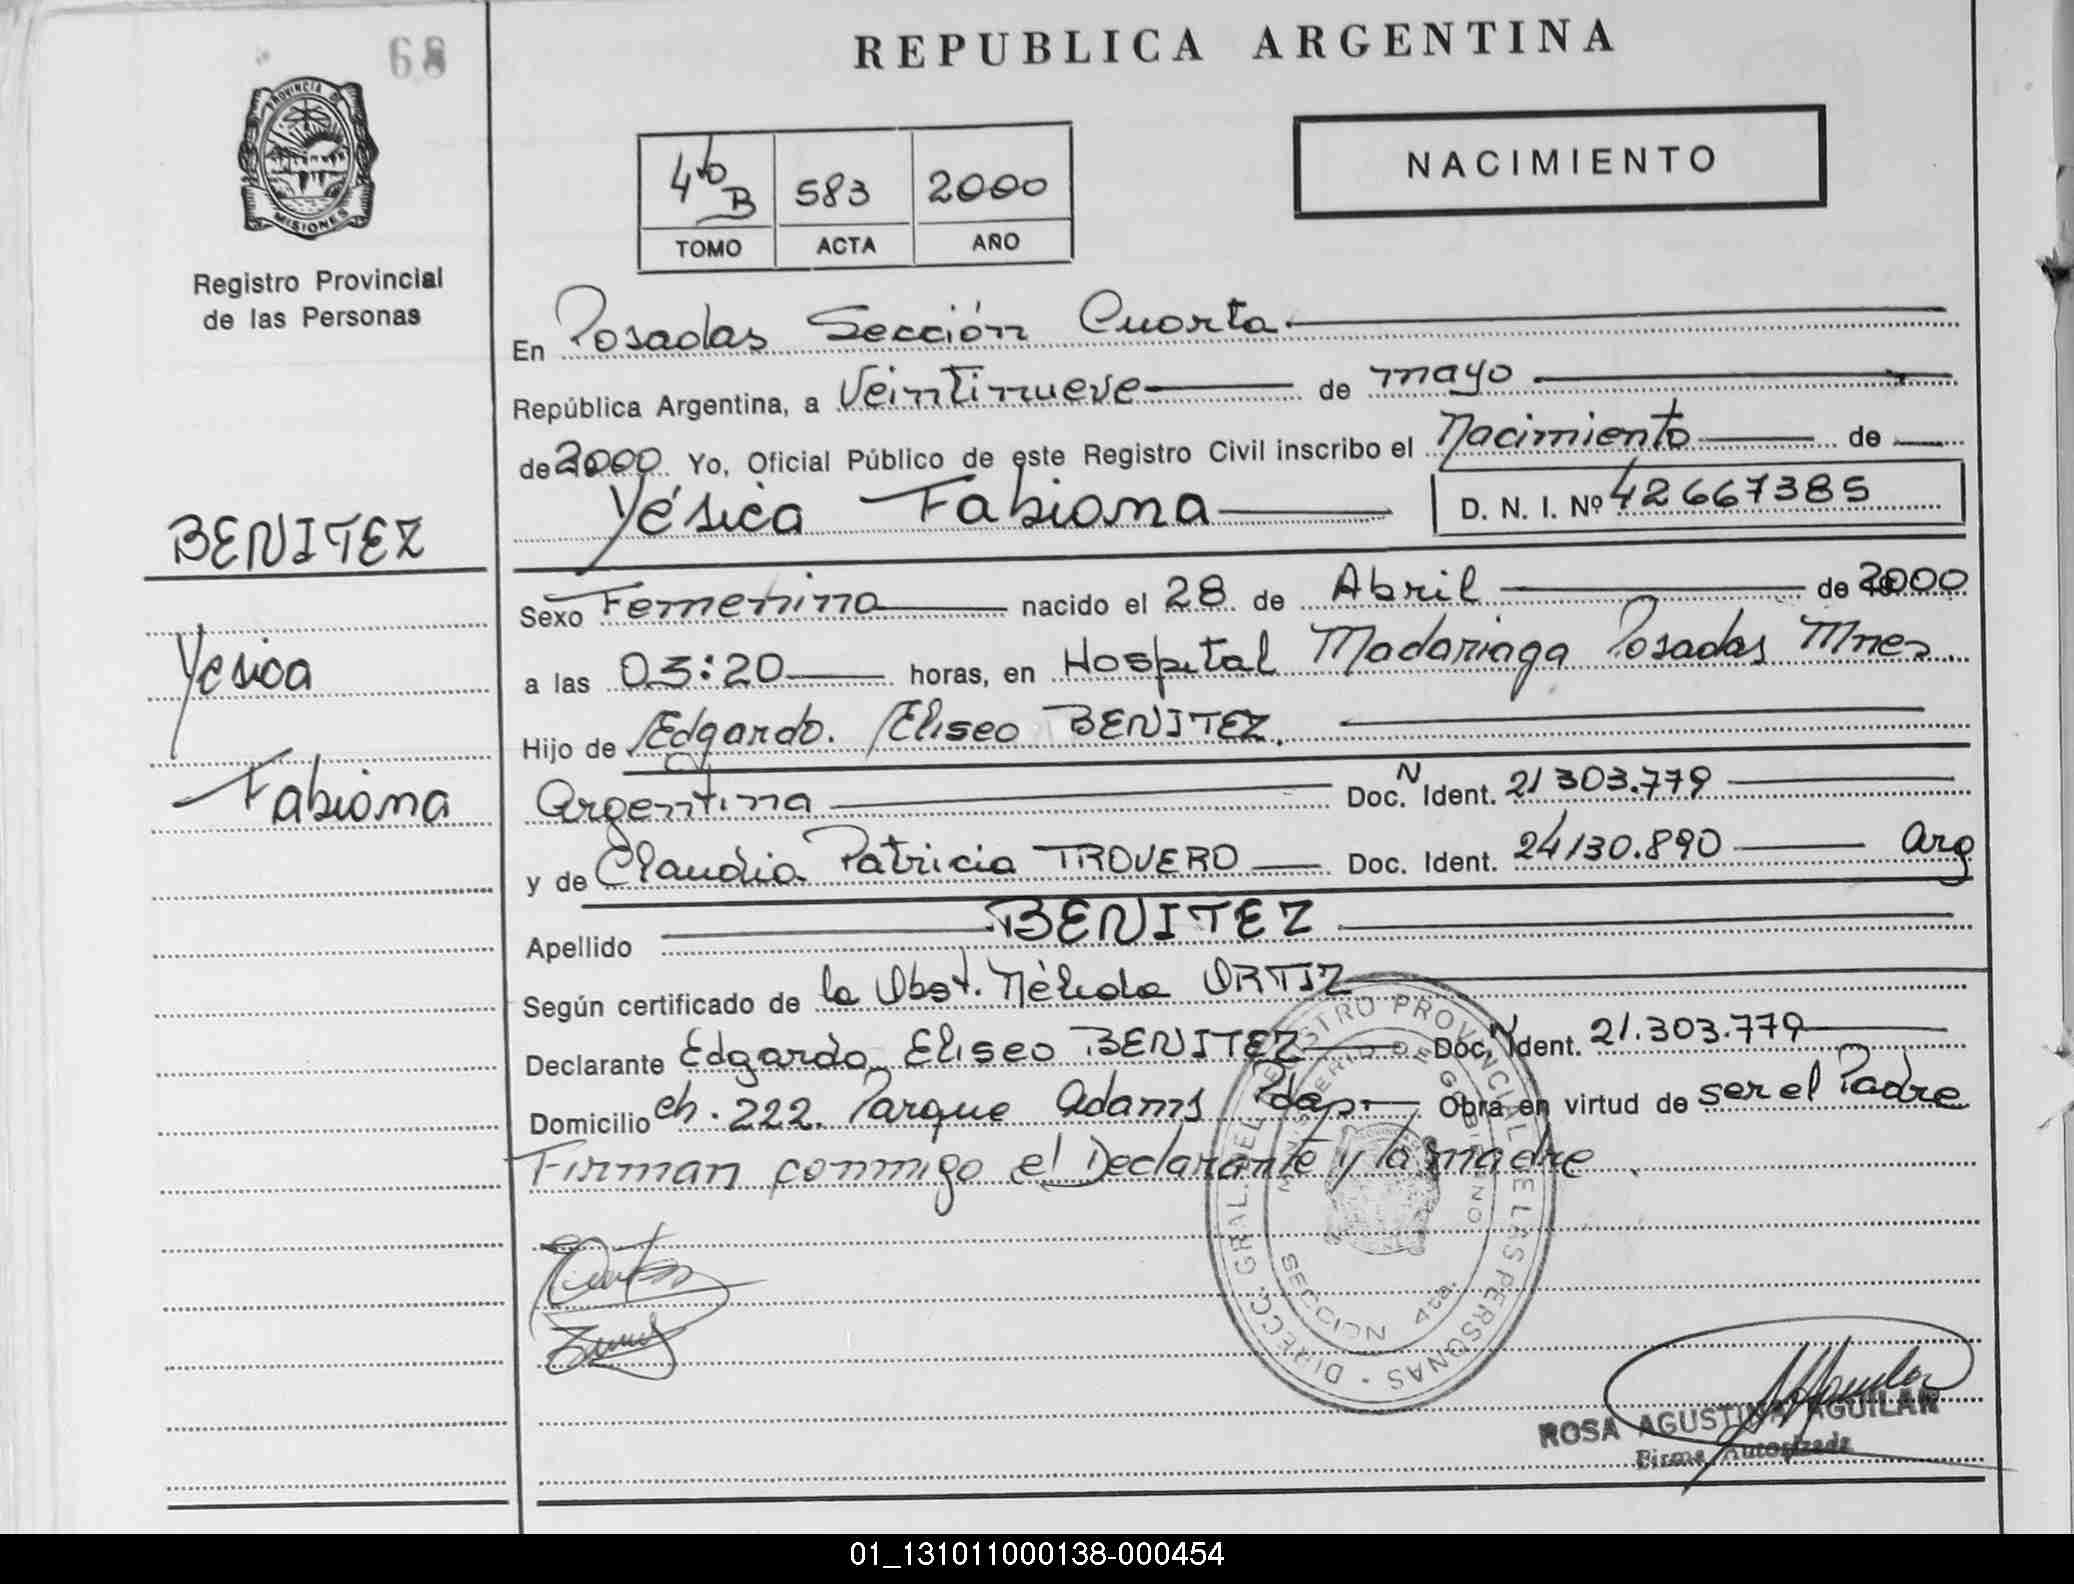 68
REPUBLICA ARGENTINA
PROVINCIA DE
MISIONES
Registro Provincial
de las Personas
4to B 583 2000
TOMO ACTA AÑO
NACIMIENTO
En Posadas Sección Cuarta
República Argentina, a Veintinueve de mayo
de 2000 Yo, Oficial Público de este Registro Civil inscribo el Nacimiento de
Yésica Fabiana D. N. I. Nº 42667385
BENITEZ
Yesica
Fabiana
Sexo Femenino nacido el 28 de Abril de 2000
a las 03:20 horas, en Hospital Madariaga Posadas Mnes.
Hijo de Edgardo. Eliseo BENITEZ.
Argentina Doc. N Ident. 21303.779
y de Claudia Patricia TROVERO Doc. Ident. 24130.890 Arg
Apellido BENITEZ
Según certificado de la Obst. Nélida ORTIZ
Declarante Edgardo Eliseo BENITEZ Doc. N Ident. 21.303.779
Domicilio ch. 222. Parque Adams Pdas. Obra en virtud de ser el Padre
Firman conmigo el Declarante y la madre
DIRECC. GRAL. DEL REGISTRO PROVINCIAL DE LAS PERSONAS
MINISTERIO DE GOBIERNO
SECCION 4ta.
ROSA AGUSTINA AGUILAR
Firma Autorizada
01_131011000138-000454